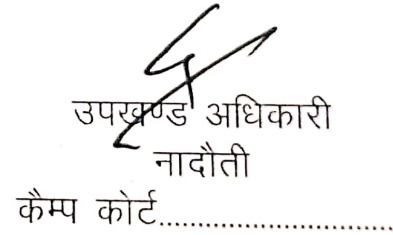 उपखण्ड अधिकारी
नादौती
कैम्प कोर्ट..............................